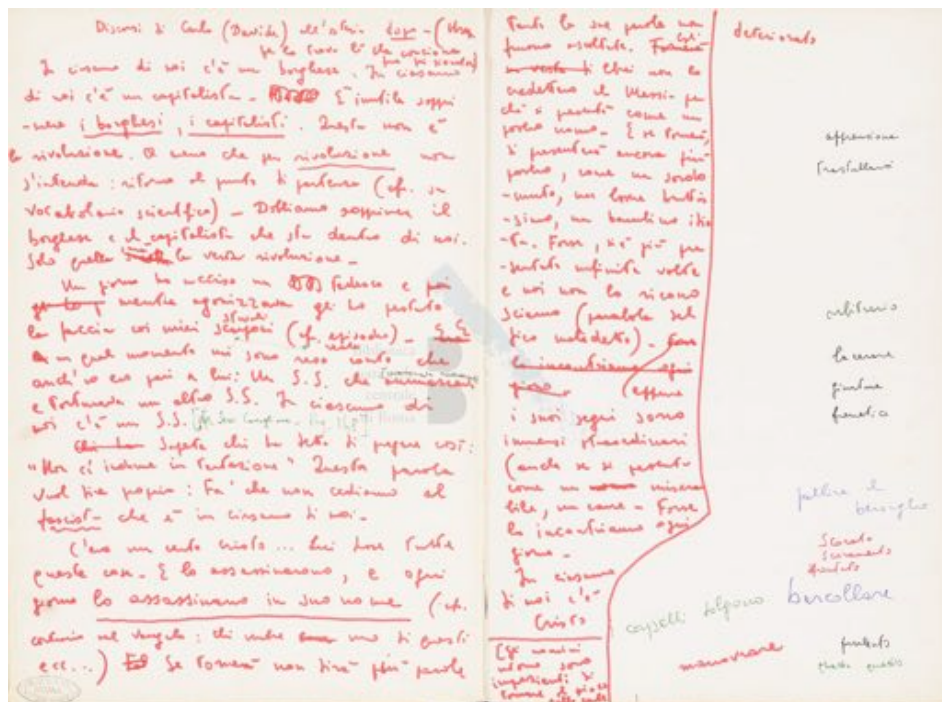 Discorsi di Carlo (Davide) all'osteria dopo - (Una
In ciascuno di noi c'è un borghese. In ciascuno
di noi c'è un capitalista - È inutile soppri
-mere i borghesi, i capitalisti. Questa non è
la rivoluzione. A meno che per rivoluzione non
s'intenda: ritorno al punto di partenza (cf. su
vocabolario scientifico) - Dobbiamo sopprimere il
borghese e il capitalista che sta dentro di noi.
Solo quella è la vera rivoluzione -
Un giorno ho ucciso un tedesco e poi
mentre agonizzava gli ho pestato
la faccia coi miei stivali scarponi (cf. episodio) -
in quel momento mi sono reso conto che
anch'io ero pari a lui: Un S.S. che
e torturava un altro S.S. In ciascuno di
noi c'è un S.S.
Sapete chi ha detto di pregare così:
"Non ci indurre in tentazione" Questa parola
vuol dire proprio: Fa' che non cediamo al
fascista che è in ciascuno di noi -
C'era un certo Cristo... Lui disse tutte
queste cose - E lo assassinarono, e ogni
giorno lo assassinano in suo nome (cf.
nel Vangelo: chi uno di questi
ecc...) Se tornerà non dirà più parole
Tanto le sue parole non
furono ascoltate. Gli
Ebrei non lo
credettero il Messia per
ché si presentò come un
povero uomo - E se tornerà,
si presenterà ancora più
povero, come un sordo
-muto, un brutti
-simo, un bambino idio
-ta. Forse, si è già pre
-sentato infinite volte
e noi non lo ricono
sciamo (parabola del
fico maledetto) - Forse
lo incontriamo ogni
giorno (eppure
i suoi segni sono
immensi straordinari
(anche se si presenta
come un misera
bile, un cane - Forse
lo incontriamo ogni
giorno -
In ciascuno
di noi c'è
Cristo
(Gli uomini
intorno sono
impazienti di
tornare al gioco
deteriorato
apprensione
trastullarsi
arbitrario
lacerare
giunture
frenetica
fallire il
bersaglio
Scorato
Scoramento
capelli barcollare
manovrare